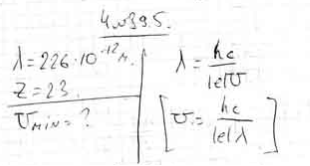 4.039.5.
λ=226·10⁻¹²м.
Z=23.
U min=?
λ=hc/|e|U
[U=hc/|e|λ]